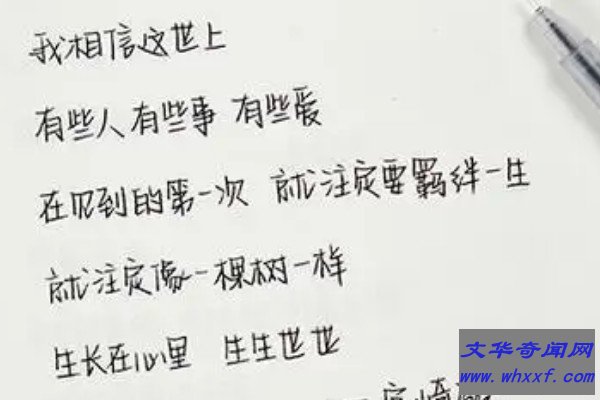 我相信这世上
有些人有些事 有些爱
在见到的第一次 就注定要羁绊一生
就注定像一棵树一样
生长在心里 生生世世
文华奇闻网
www.whxxf.com